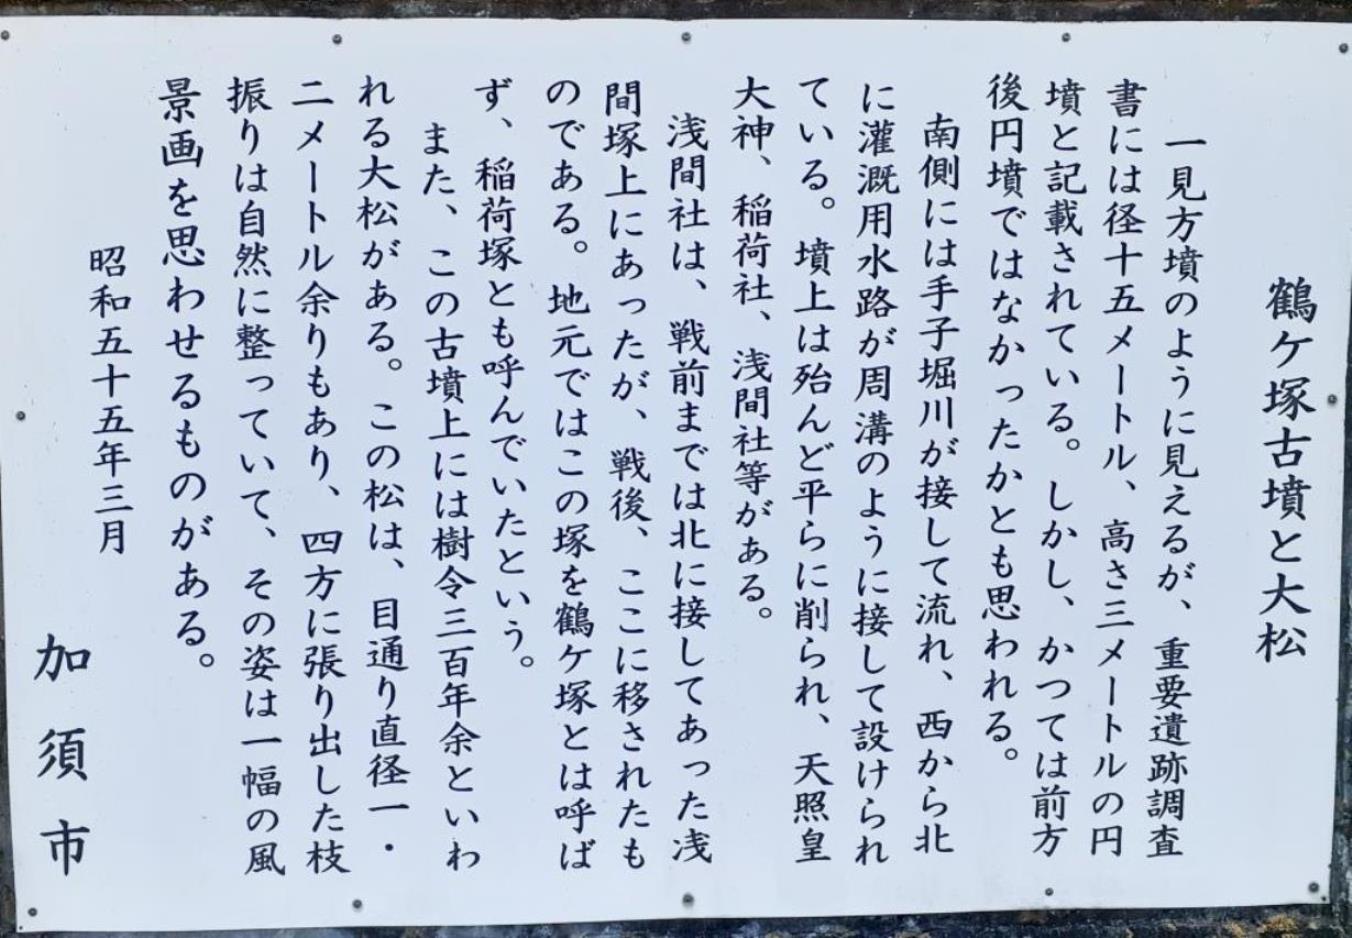 鶴ケ塚古墳と大松
一見方墳のように見えるが、重要遺跡調査
書には径十五メートル、高さ三メートルの円
墳と記載されている。しかし、かつては前方
後円墳ではなかったかとも思われる。
南側には手子堀川が接して流れ、西から北
に灌漑用水路が周溝のように接して設けられ
ている。墳上は殆んど平らに削られ、天照皇
大神、稲荷社、浅間社等がある。
浅間社は、戦前までは北に接してあった浅
間塚上にあったが、戦後、ここに移されたも
のである。地元ではこの塚を鶴ケ塚とは呼ば
ず、稲荷塚とも呼んでいたという。
また、この古墳上には樹令三百年余といわ
れる大松がある。この松は、目通り直径一・
二メートル余りもあり、四方に張り出した枝
振りは自然に整っていて、その姿は一幅の風
景画を思わせるものがある。
昭和五十五年三月
加須市